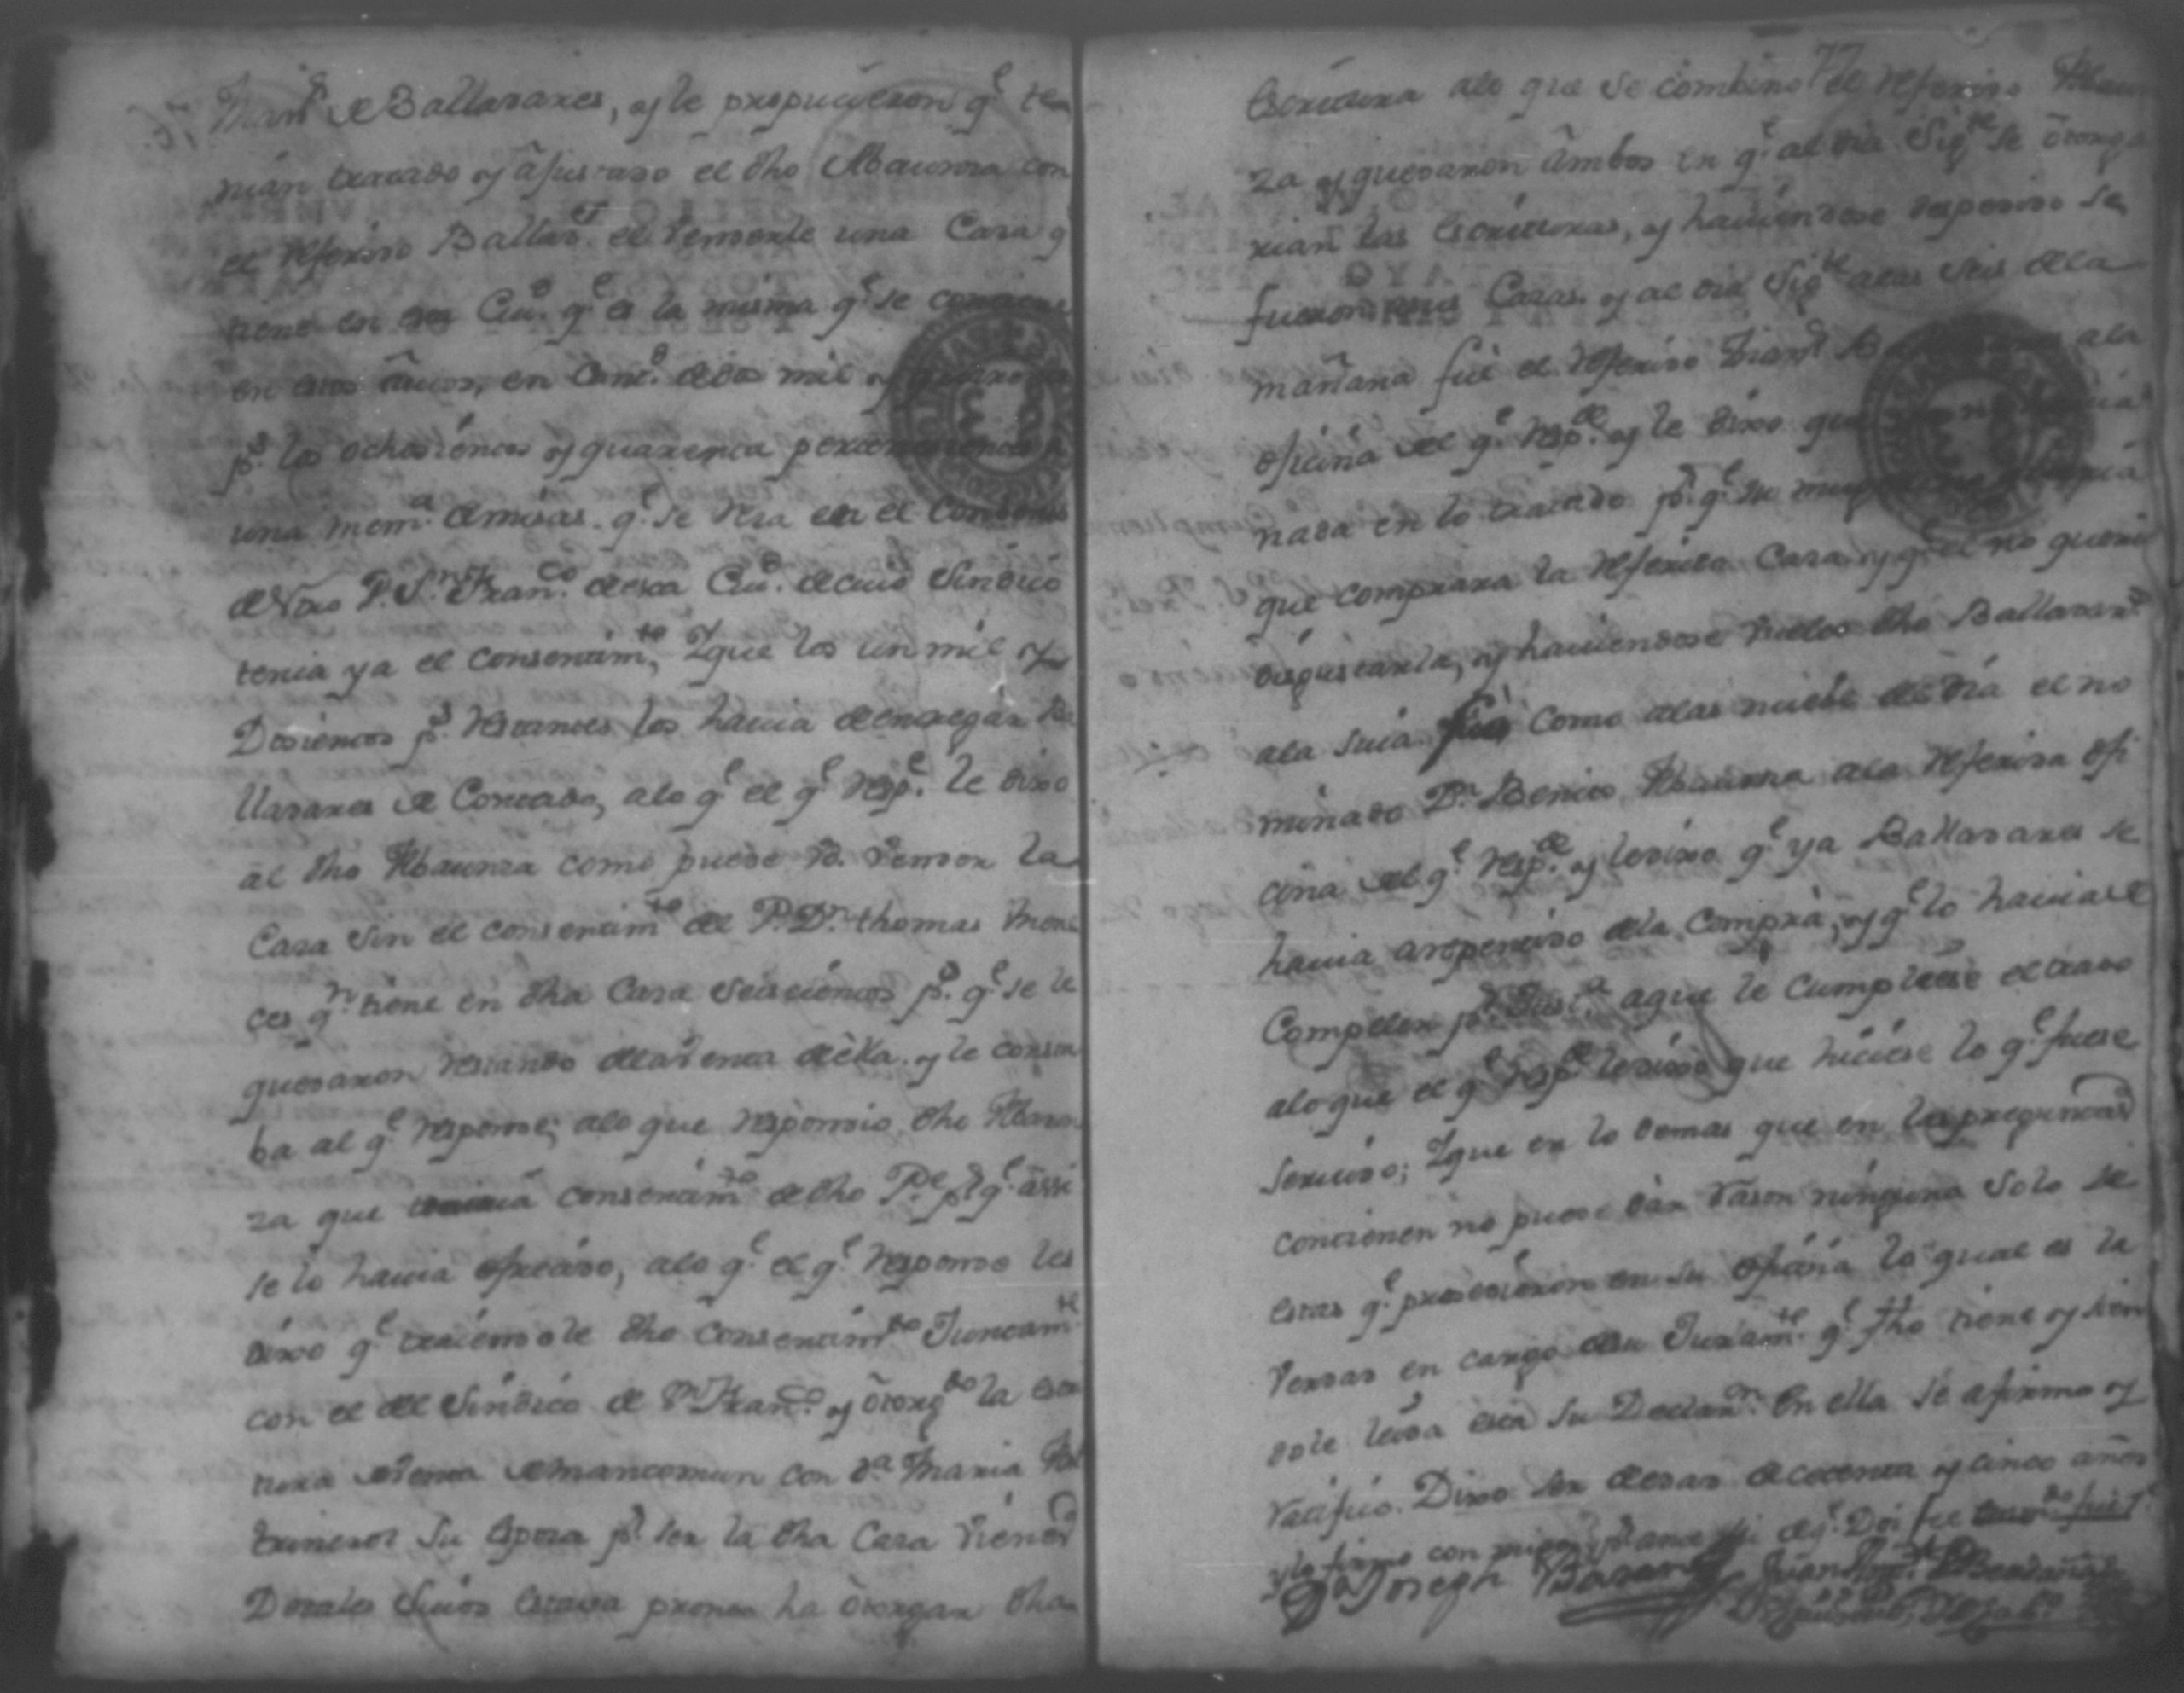 Man.l de Balladares, y le propucieron q.e te
nian tratado y ajustado el dho Abaunza con
el referido Ballad.s el venderle una Casa q
tiene en esta Ciu.d q.e es la misma q.e se contiene
en estos autos, en Cant.d de dos mil y
p.s los ochosientos y quarenta pertenecientes a
una mem.a de misas q.e se reza en el Combento
de Nro P. S.n Fran.co de esta Ciu.d de cuio Sindico
tenia ya el consentim.to, Y que los un mil y
Dosientos p.s restantes los havia de entregar Ba
lladares de Contado, alo q.e el q.e resp.e le dixo
al dho Abaunza como puede Vd. vender la
Casa sin el consentim.to del P. D.n thomas Mon
ces q.n tiene en dha Casa seiscientos p.s q.e se le
quedaron restando de la venta de ella y le consta
ba al q.e responde; alo que respondio dho Abaun
za que tenia consentim.to de dho P.e p.r q.e assi
se lo havia ofrecido, alo q.e el q.e responde les
dixo q.e traiendole dho consentim.to Juntam.te
con el del Sindico de S.n Fran.co y otorg.do la escri
tura de venta de mancomun con d.a Maria
su esposa p.r ser la dha Casa vienes
Dotales suios estava pronto ha otorgar dha
77
Escritura alo que se combino el referido Abaun
za y quedaron ambos en q.e al dia sig.te se otorga
rian las Escrituras, y haviendose despedido se
fueron a sus Casas y al dia sig.te alas seis de la
mañana fue el referido Man.l ala
oficina del q.e resp.de y le dixo que
nada en lo tratado p.r q.e su
que comprara la referida Casa y q.e el no queria
disgustarla, y haviendose vuelto dho Balladares
ala suia fue como alas nuebe del dia el no
minado D.n Benito Abaunza ala referida ofi
cina del q.e resp.de y le dixo q.e ya Balladares se
havia arrepentido de la Compra, y q.e lo havia de
Compeler p.r Just.a a que le Cumpliese el trato
alo que el q.e resp.de le dixo que hiciese lo q.e fuese
servido; Y que en lo demas que en las preguntas
contienen no puede dar rason ninguna solo de
estas q.e presedieron en su oficina lo qual es la
verdad en cargo de su Juram.to q.e fho tiene y sien
dole leida esta su Declar.n en ella se afirmo y
ratifico. Dixo ser de edad de cetenta y cinco años
y lo firmo con migo p.r ante de q.e Doi fee
Joseph